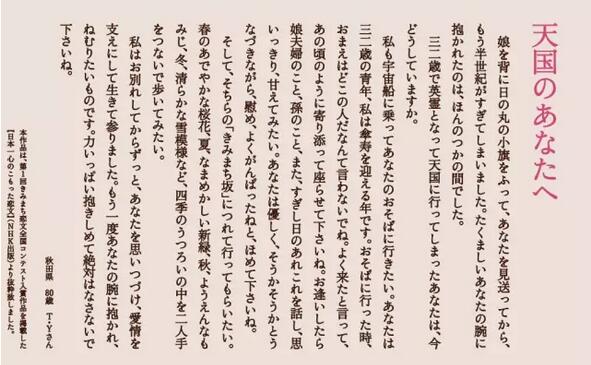 天国のあなたへ
娘を背に日の丸の小旗をふって、あなたを見送ってから、
もう半世紀がすぎてしまいました。たくましいあなたの腕に
抱かれたのは、ほんのつかの間でした。
三二歳で英霊となって天国に行ってしまったあなたは、今
どうしていますか。
私も宇宙船に乗ってあなたのおそばに行きたい。あなたは
三二歳の青年、私は傘寿を迎える年です。おそばに行った時、
おまえはどこの人だなんて言わないでね。よく来たと言って、
あの頃のように寄り添って座らせて下さいね。お逢いしたら
娘夫婦のこと、孫のこと、また、すぎし日のあれこれを話し、思
いっきり、甘えてみたい。あなたは優しく、そうかそうかとう
なづきながら、慰め、よくがんばったねと、ほめて下さいね。
そして、そちらの「きみまち坂」につれて行ってもらいたい。
春のあでやかな桜花、夏、なまめかしい新緑、秋、ようえんなも
みじ、冬、清らかな雪模様など、四季のうつろいの中を二人手
をつないで歩いてみたい。
私はお別れしてからずっと、あなたを思いつづけ、愛情を
支えにして生きて参りました。もう一度あなたの腕に抱かれ、
ねむりたいものです。力いっぱい抱きしめて絶対はなさないで
下さいね。
秋田県 80歳 T・Yさん
本作品は、第1回きみまち恋文全国コンテスト入賞作品を掲載した
「日本一心のこもった恋文」(NHK出版)より抜粋致しました。